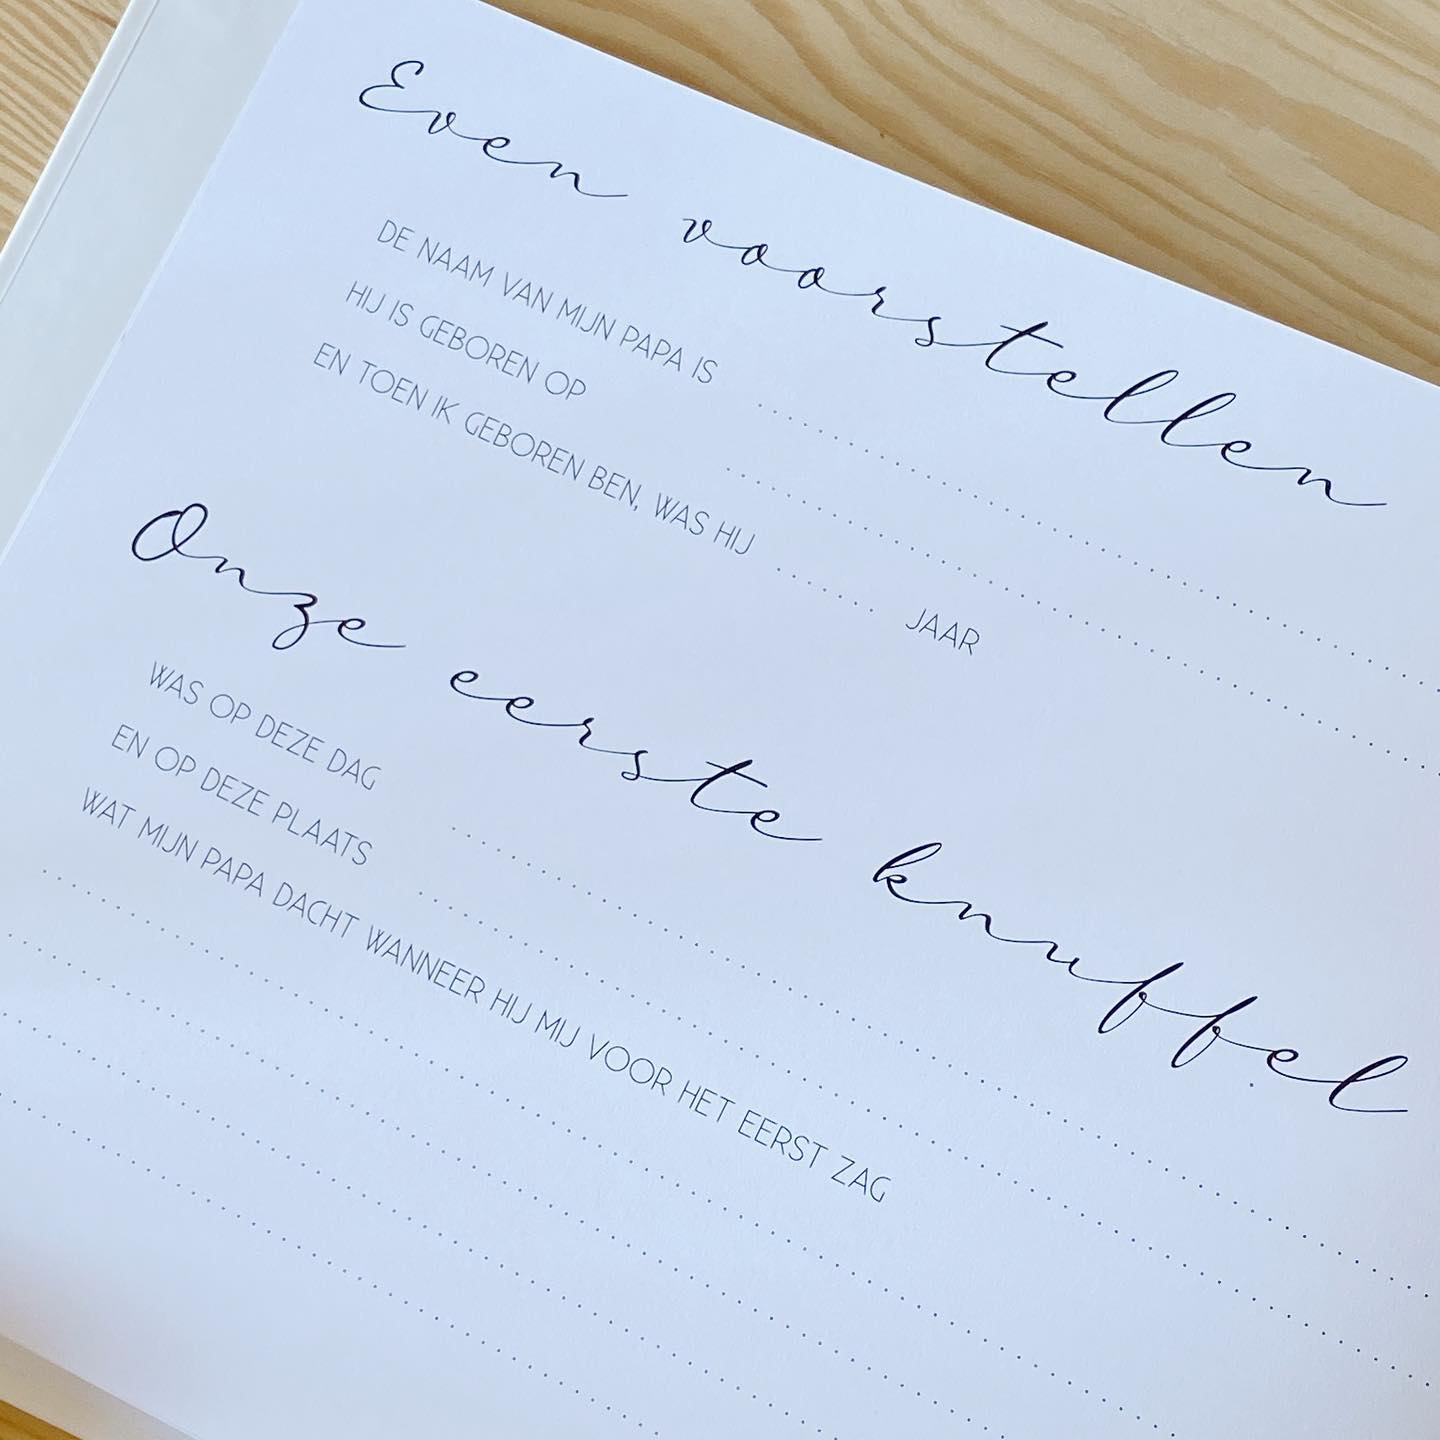 Even voorstellen
DE NAAM VAN MIJN PAPA IS
HIJ IS GEBOREN OP
EN TOEN IK GEBOREN BEN, WAS HIJ JAAR
Onze eerste knuffel
WAS OP DEZE DAG
EN OP DEZE PLAATS
WAT MIJN PAPA DACHT WANNEER HIJ MIJ VOOR HET EERST ZAG